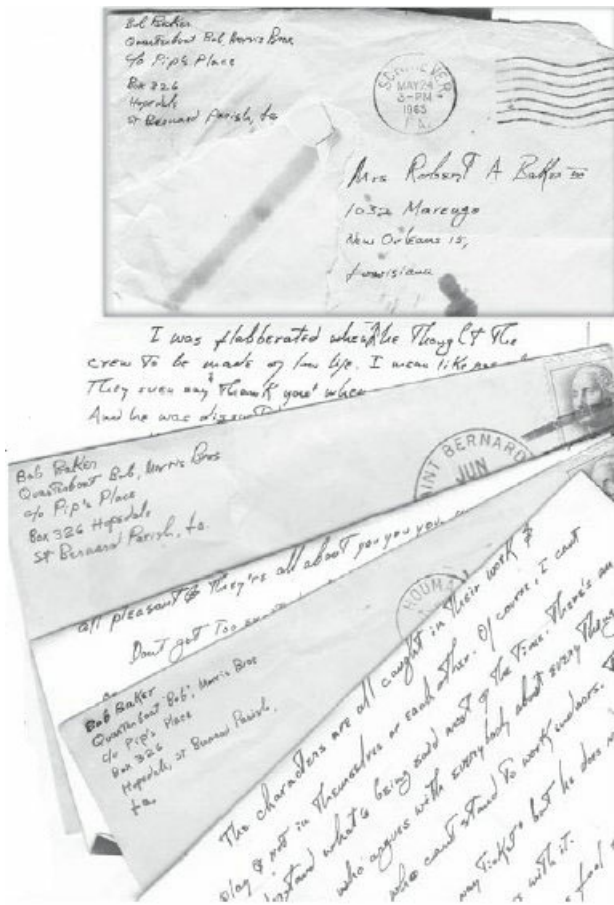 Bob Baker
Quarterboat Bob, Morris Bros
c/o Pip's Place
Box 326
Hopedale
St Bernard Parish, La
SCHRIEVER,
MAY 24
3-PM
1963
LA.
Mrs Robert A Baker III
1032 Marengo
New Orleans 15,
Louisiana
I was flabberated when he thought the
crew to be made of low life. I mean like
They even say "Thank you" when
And he was
Bob Baker
Quarterboat Bob, Morris Bros
c/o Pip's Place
Box 326 Hopedale
St Bernard Parish, La.
SAINT BERNARD
JUN
all pleasant & they're all about you you you
Don't get too
HOUMA
Bob Baker
Quarterboat "Bob", Morris Bros
c/o Pip's Place
Box 326
Hopedale, St Bernard Parish,
La
The characters are all caught in their work &
play & not in themselves or each other. Of course, I can't
understand what's being said most of the time. There's an
who argues with everybody about every
who can't stand to work indoors.
way tickets but he does
with it.
feel